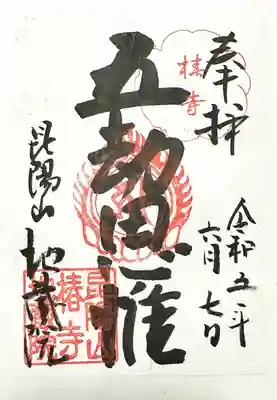 奉拝
令和五年
六月七日
椿寺
五劫思惟
昆陽山 地蔵院
昆陽山
椿寺